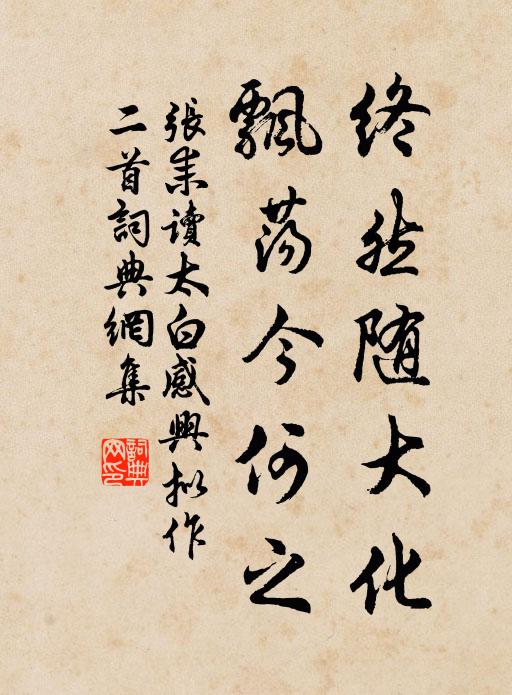 終然随大化
飄荡今何之
張耒讀太白感興拟作
二首詞典網集
詞典网印